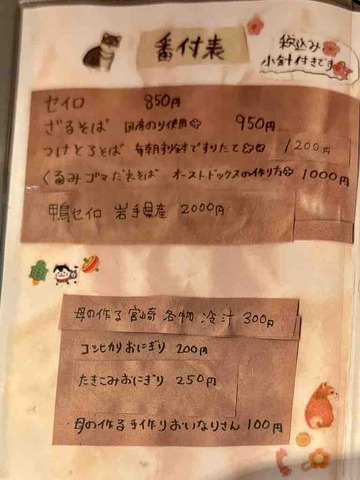 番付表
税込み
小鉢付きです
セイロ 850円
ざるそば 国産のり使用 950円
つけとろそば 毎朝すり鉢ですりたて 1200円
くるみゴマだれそば オーストドックスの作り方 1000円
鴨セイロ 岩手県産 2000円
母の作る宮崎名物冷汁 300円
コシヒカリおにぎり 200円
たきこみおにぎり 250円
・母の作る手作りおいなりさん 100円